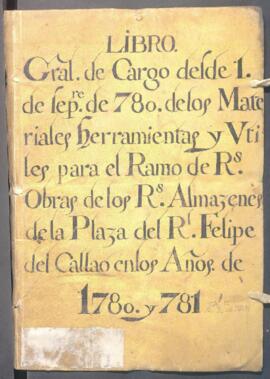 LIBRO.
Gral. de Cargo desde 1.
de sepre. de 780. de los Mate
riales herramientas y Vti
les para el Ramo de Rs.
Obras de los Rs. Almazenes
de la Plaza del Rl. Felipe
del Callao en los Años. de
1780. y 781